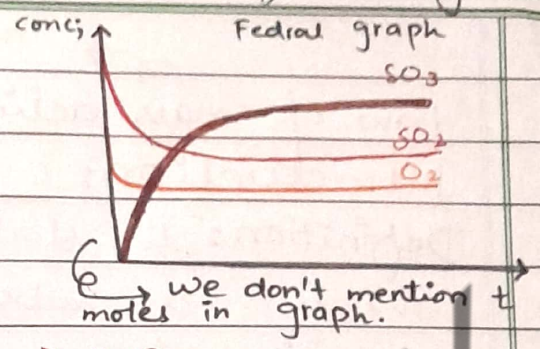 conc;
Fedral graph
SO3
SO2
O2
we don't mention t
moles in graph.